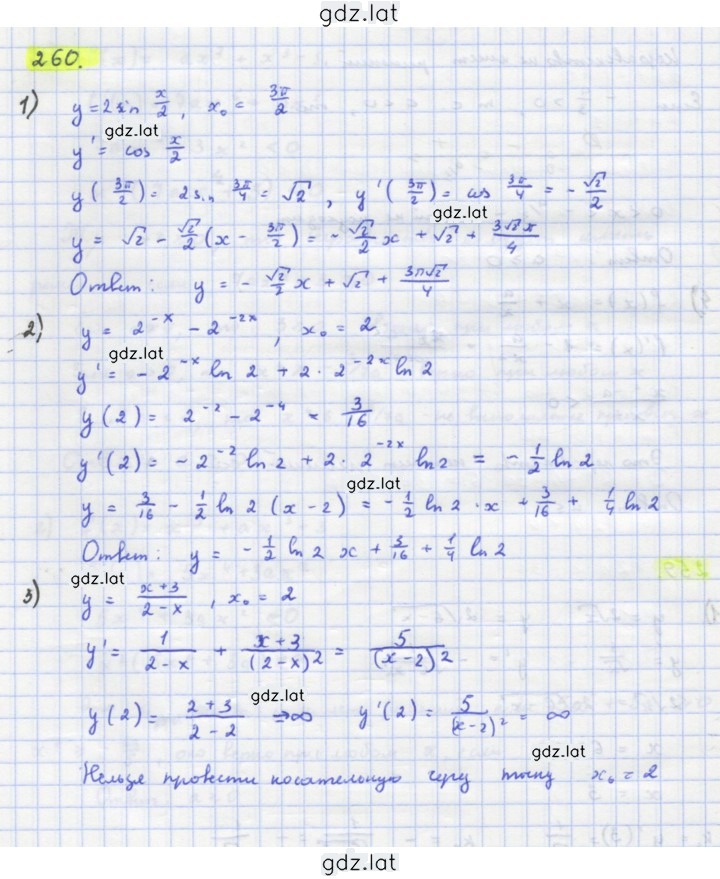 gdz.lat
260.
1) y = 2 sin x/2, x₀ = 3π/2
gdz.lat
y' = cos x/2
y(3π/2) = 2 sin 3π/4 = √2, y'(3π/2) = cos 3π/4 = -√2/2
gdz.lat
y = √2 - √2/2 (x - 3π/2) = -√2/2 x + √2 + 3√2π/4
Ответ: y = -√2/2 x + √2 + 3π√2/4
2) y = 2^(-x) - 2^(-2x), x₀ = 2
gdz.lat
y' = -2^(-x) ln 2 + 2 · 2^(-2x) ln 2
y(2) = 2^(-2) - 2^(-4) = 3/16
y'(2) = -2^(-2) ln 2 + 2 · 2^(-2x) ln 2 = -1/2 ln 2
gdz.lat
y = 3/16 - 1/2 ln 2 (x - 2) = -1/2 ln 2 · x + 3/16 + 1/4 ln 2
Ответ: y = -1/2 ln 2 x + 3/16 + 1/4 ln 2
gdz.lat
3) y = (x+3)/(2-x), x₀ = 2
y' = 1/(2-x) + (x+3)/(2-x)² = 5/(x-2)²
gdz.lat
y(2) = (2+3)/(2-2) => ∞ y'(2) = 5/(x-2)² = ∞
gdz.lat
Нельзя провести касательную через точку x₀ = 2
gdz.lat